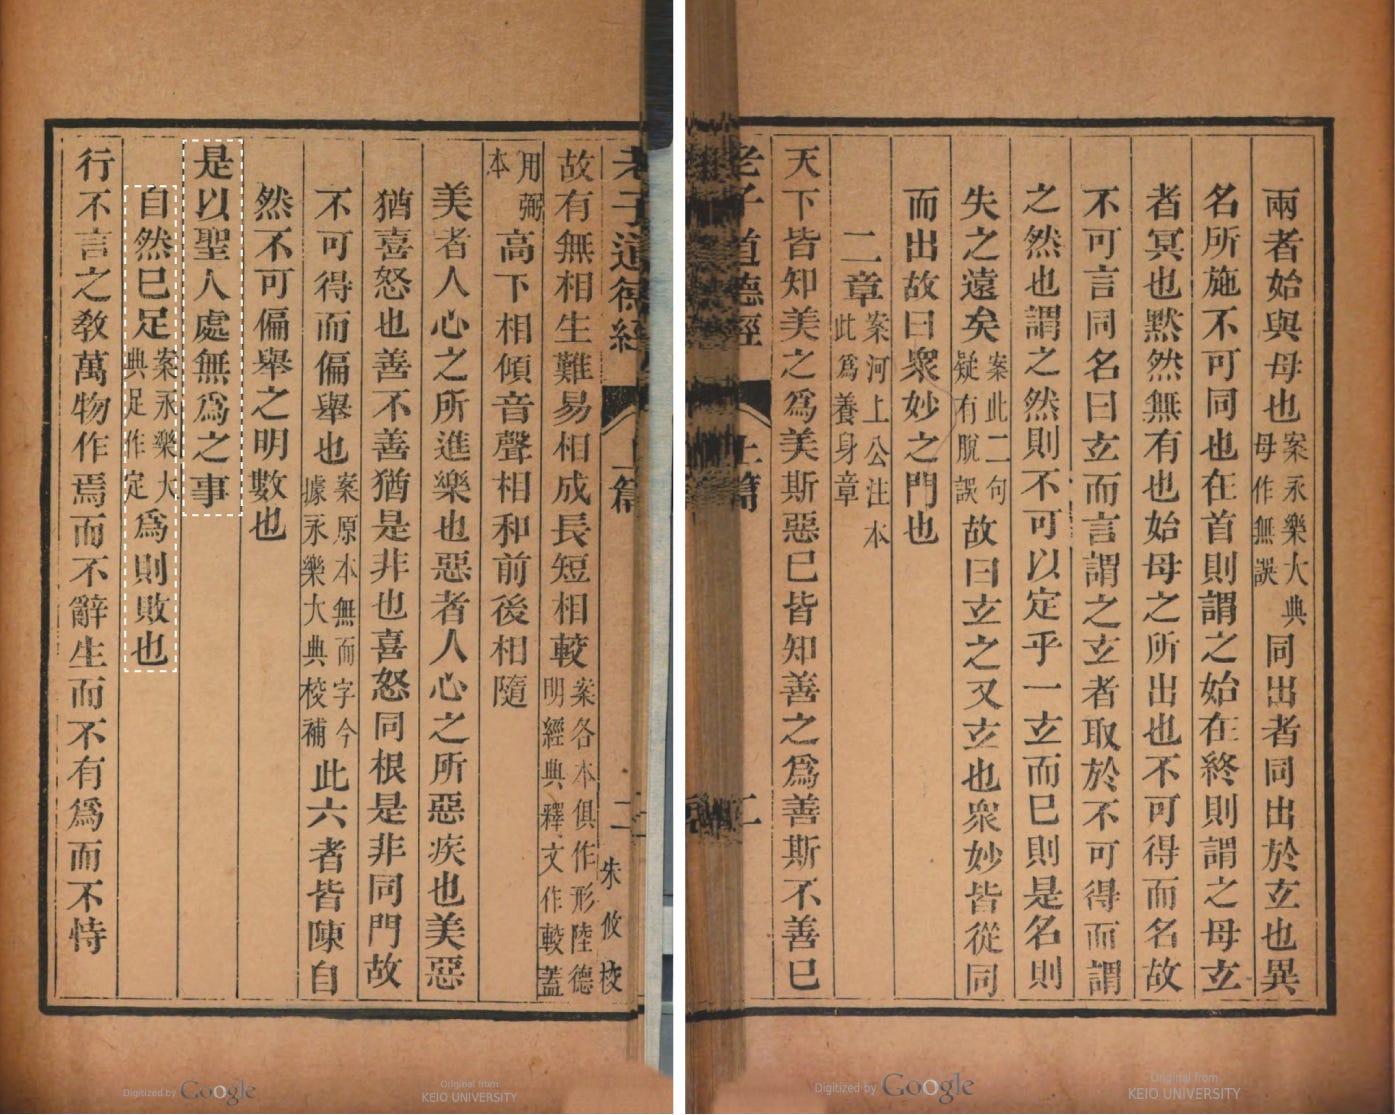 兩者始與母也案永樂大典母作無誤同出者同出於玄也異
名所施不可同也在首則謂之始在終則謂之母玄
者冥也黙然無有也始母之所出也不可得而名故
不可言同名曰玄而言謂之玄者取於不可得而謂
之然也謂之然則不可以定乎一玄而已則是名則
失之遠矣案此二句疑有脫誤故曰玄之又玄也衆妙皆從同
而出故曰衆妙之門也
二章案河上公注本此爲養身章
天下皆知美之爲美斯惡已皆知善之爲善斯不善已
老子道德經 上篇 二
老子道德經 上篇 二 朱攸校
故有無相生難易相成長短相較案各本俱作形陸德明經典釋文作較蓋
用弼本高下相傾音聲相和前後相隨
美者人心之所進樂也惡者人心之所惡疾也美惡
猶喜怒也善不善猶是非也喜怒同根是非同門故
不可得而偏舉也案原本無而字今據永樂大典校補此六者皆陳自
然不可偏舉之明數也
是以聖人處無爲之事
自然已足案永樂大典足作定爲則敗也
行不言之教萬物作焉而不辭生而不有爲而不恃
Digitized by Google
Original from
KEIO UNIVERSITY
Digitized by Google
Original from
KEIO UNIVERSITY